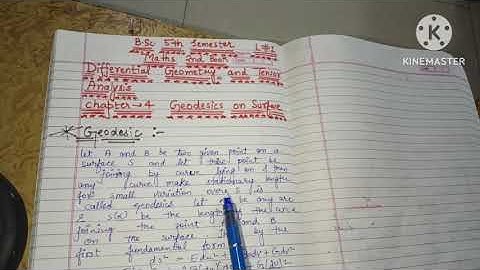 B.Sc 5th Semester L#1
Maths 2nd Book
KINEMASTER
Differential Geometry and Tensor
Analysis
chapter→4 Geodesics on Surface
Geodesic :-
let A and B be two given point on a
surface S and let these point be
joining by curve lying on S then
any curve make stationary length
for small variation over S is
called geodesics let be any arc
& be the length of the arc
joining the point A and B
on the surface by the
first fundamental form
ds² = Edu² + Gdv²